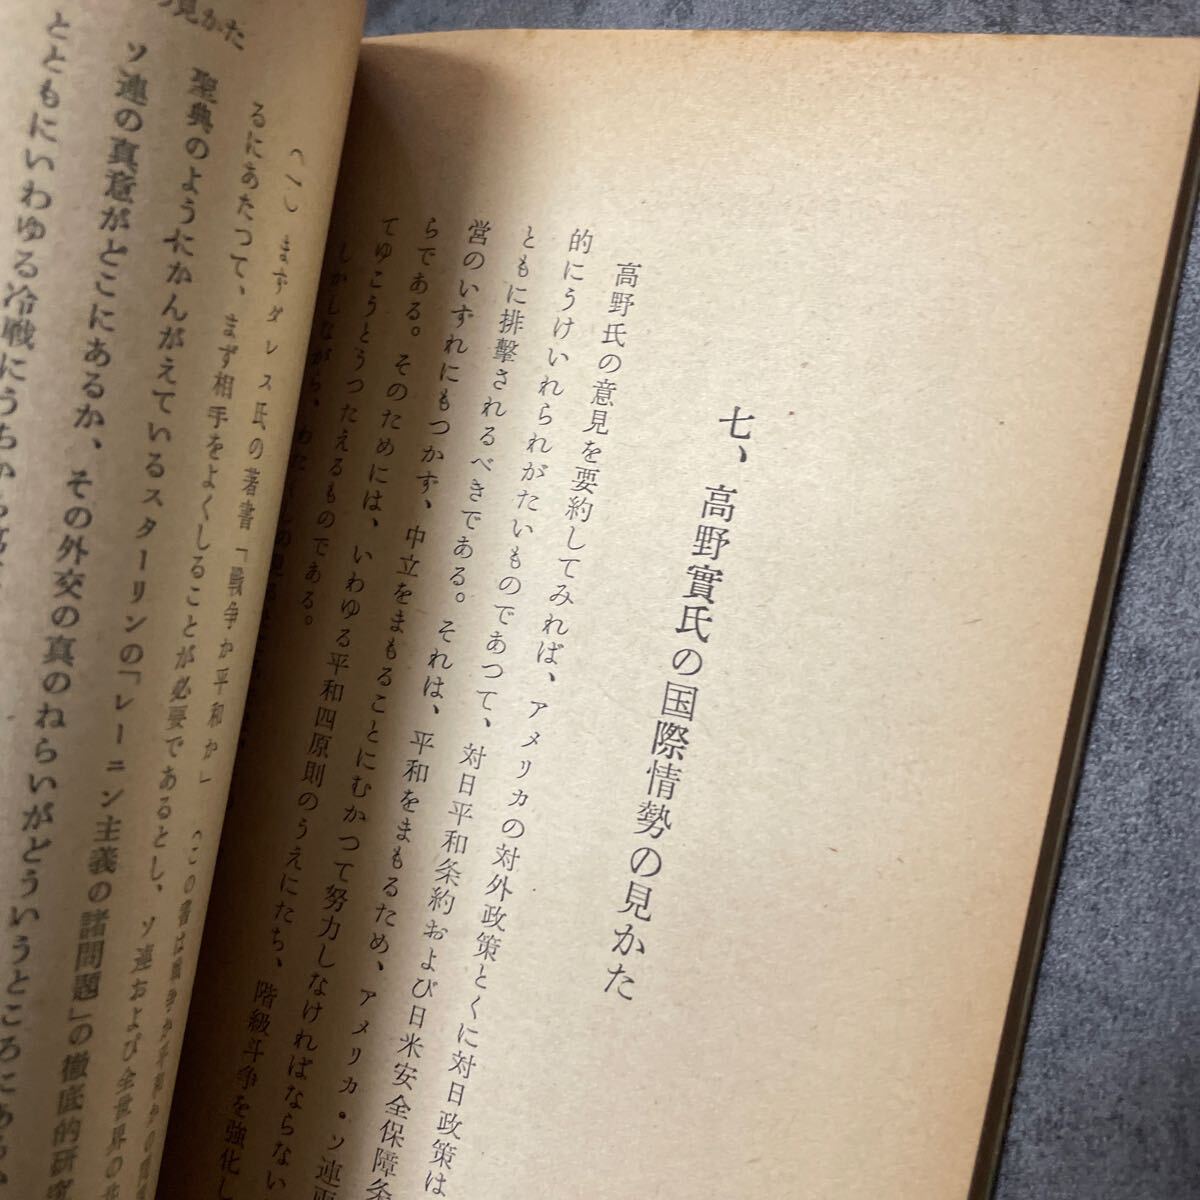 七、高野實氏の国際情勢の見かた
高野氏の意見を要約してみれば、アメリカの対外政策とくに対日政策は
的にうけいれられがたいものであつて、対日平和条約および日米安全保障条
ともに排撃されるべきである。それは、平和をまもるため、アメリカ・ソ連両
営のいずれにもつかず、中立をまもることにむかつて努力しなければならない
らである。そのためには、いわゆる平和四原則のうえにたち、階級斗争を強化し
てゆこうとうつたえるものである。
しかしながら、
の見かた
(一) まずダレス氏の著書「戦争か平和か」(この書は戦争か平和かの問
るにあたつて、まず相手をよくしることが必要であるとし、ソ連および全世界の
聖典のようにかんがえているスターリンの「レーニン主義の諸問題」の徹底的研究
ソ連の真意がどこにあるか、その外交の真のねらいがどういうところにあ
とともにいわゆる冷戦にうちか